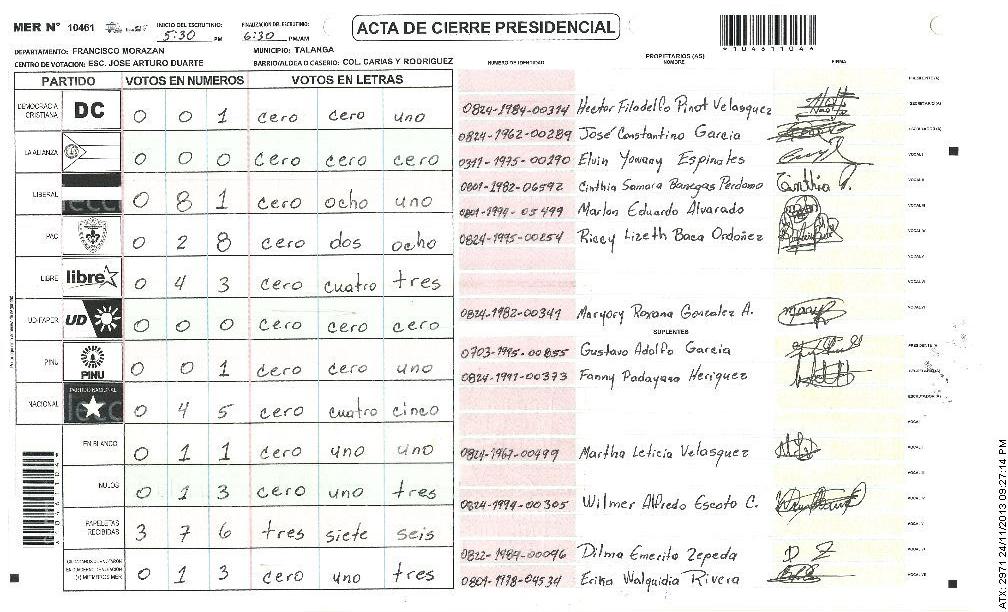 MER Nº 10461 INICIO DEL ESCRUTINIO: 5:30 PM FINALIZACION DEL ESCRUTINIO: 6:30 PM/AM
ACTA DE CIERRE PRESIDENCIAL
DEPARTAMENTO: FRANCISCO MORAZAN MUNICIPIO: TALANGA
CENTRO DE VOTACION: ESC. JOSE ARTURO DUARTE BARRIO/ALDEA O CASERIO: COL. CARIAS Y RODRIGUEZ
PARTIDO VOTOS EN NUMEROS VOTOS EN LETRAS
DEMOCRACIA CRISTIANA DC 0 0 1 cero cero uno
LA ALIANZA 0 0 0 cero cero cero
LIBERAL 0 8 1 cero ocho uno
PAC 0 2 8 cero dos ocho
LIBRE libre 0 4 3 cero cuatro tres
UD-FAPER UD 0 0 0 cero cero cero
PINU PINU 0 0 1 cero cero uno
NACIONAL PARTIDO NACIONAL 0 4 5 cero cuatro cinco
EN BLANCO 0 1 1 cero uno uno
NULOS 0 1 3 cero uno tres
PAPELETAS RECIBIDAS 3 7 6 tres siete seis
0 1 3 cero uno tres
NUMERO DE IDENTIDAD PROPIETARIOS (AS) NOMBRE FIRMA
PRESIDENTE(A)
0824-1984-00314 Hector Filadelfo Pinot Velasquez SECRETARIO(A)
0824-1962-00289 José Constantino Garcia ESCRUTADOR(A)
0311-1975-00290 Elvin Yovany Espinales VOCAL I
0801-1982-06592 Cinthia Samara Banegas Perdomo Cinthia P. VOCAL II
0801-1994-05499 Marlon Eduardo Alvarado VOCAL III
0824-1995-00254 Riccy Lizeth Baca Ordoñez VOCAL IV
VOCAL V
VOCAL VI
0824-1982-00341 Maryory Roxana Gonzalez A. VOCAL VII
SUPLENTES
0703-1995-00855 Gustavo Adolfo Garcia PRESIDENTE(A)
0824-1991-00373 Fanny Padayasa Heriquez SECRETARIO(A)
ESCRUTADOR(A)
VOCAL I
0824-1967-00499 Martha Leticia Velasquez VOCAL II
VOCAL III
0824-1994-00305 Wilmer Alfredo Escoto C. VOCAL IV
VOCAL V
0822-1984-00096 Dilma Emerita Zepeda D Z VOCAL VI
0801-1978-04534 Erika Walquidia Rivera VOCAL VII
ATX: 2971 24/11/2013 09:27:14 PM